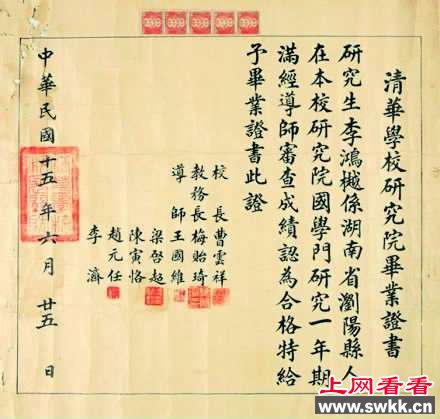 清華學校研究院畢業證書
研究生李鴻樾係湖南省瀏陽縣人
在本校研究院國學門研究一年期
滿經導師審查成績認為合格特給
予畢業證書此證
校長曹雲祥
教務長梅貽琦
導師王國維
梁啓超
陳寅恪
趙元任
李濟
中華民國十五年六月廿五日
上网看看
www.swkk.cn